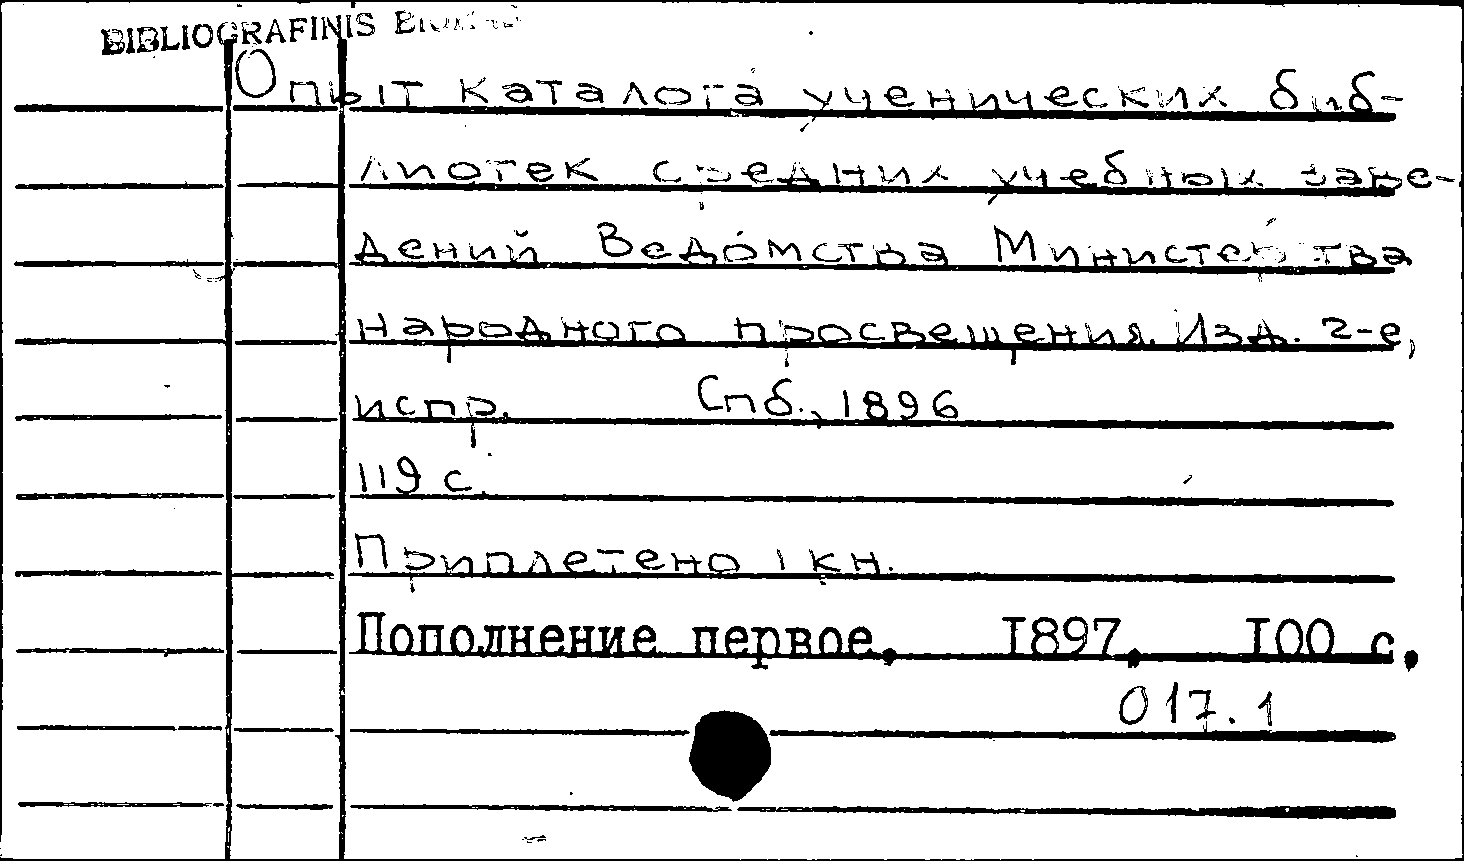 BIBLIOGRAFINIS
Опыт каталога ученических биб-
лиотек средних учебных заве-
дений Ведомства Министерства
народного просвещения. Изд. 2-е,
испр. Спб., 1896
119 с.
Приплетено 1 кн.
Пополнение первое. I897. I00 с.
017.1